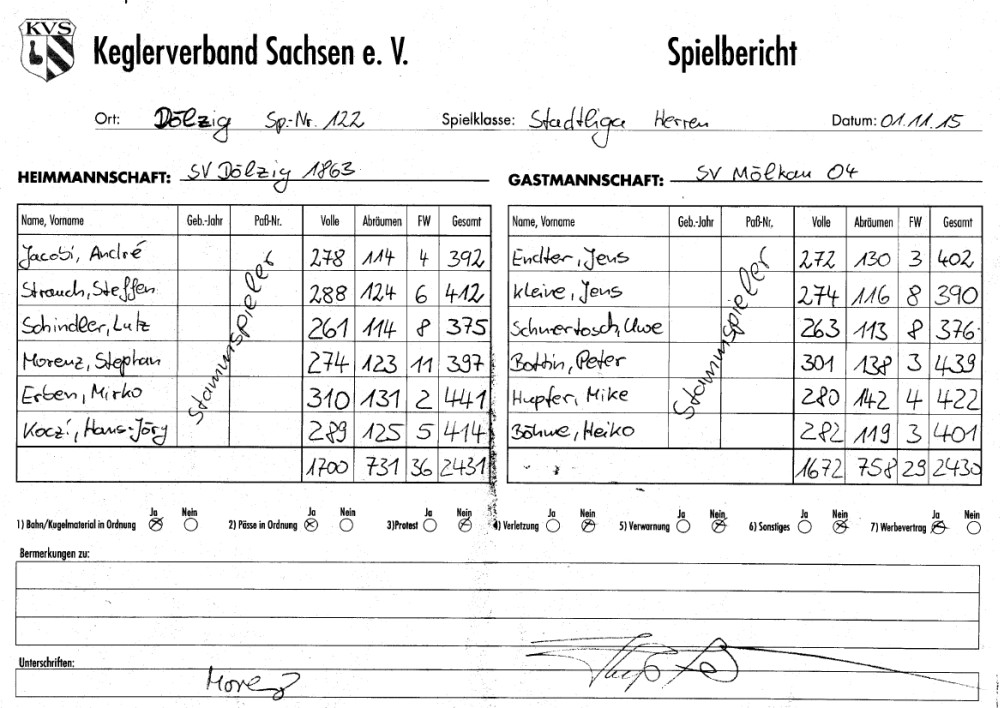 KVS
Keglerverband Sachsen e. V. Spielbericht
Ort: Dölzig Sp.-Nr. 122 Spielklasse: Stadtliga Herren Datum: 01.11.15
HEIMMANNSCHAFT: SV Dölzig 1863 GASTMANNSCHAFT: SV Mölkau 04
Name, Vorname Geb.-Jahr Paß-Nr. Volle Abräumen FW Gesamt Name, Vorname Geb.-Jahr Paß-Nr. Volle Abräumen FW Gesamt
Jacobi, André 278 114 4 392 Endter, Jens 272 130 3 402
Strauch, Steffen 288 124 6 412 Kleine, Jens 274 116 8 390
Schindler, Lutz 261 114 8 375 Schmertosch, Uwe 263 113 8 376
Morenz, Stephan 274 123 11 397 Bottin, Peter 301 138 3 439
Erben, Mirko 310 131 2 441 Hupfer, Mike 280 142 4 422
Koczi, Hans-Jörg 289 125 5 414 Böhme, Heiko 282 119 3 401
Stammspieler Stammspieler
1700 731 36 2431 1672 758 29 2430
1) Bahn/Kugelmaterial in Ordnung Ja Nein 2) Pässe in Ordnung Ja Nein 3) Protest Ja Nein 4) Verletzung Ja Nein 5) Verwarnung Ja Nein 6) Sonstiges Ja Nein 7) Werbevertrag Ja Nein
Bermerkungen zu:
Unterschriften:
Morenz